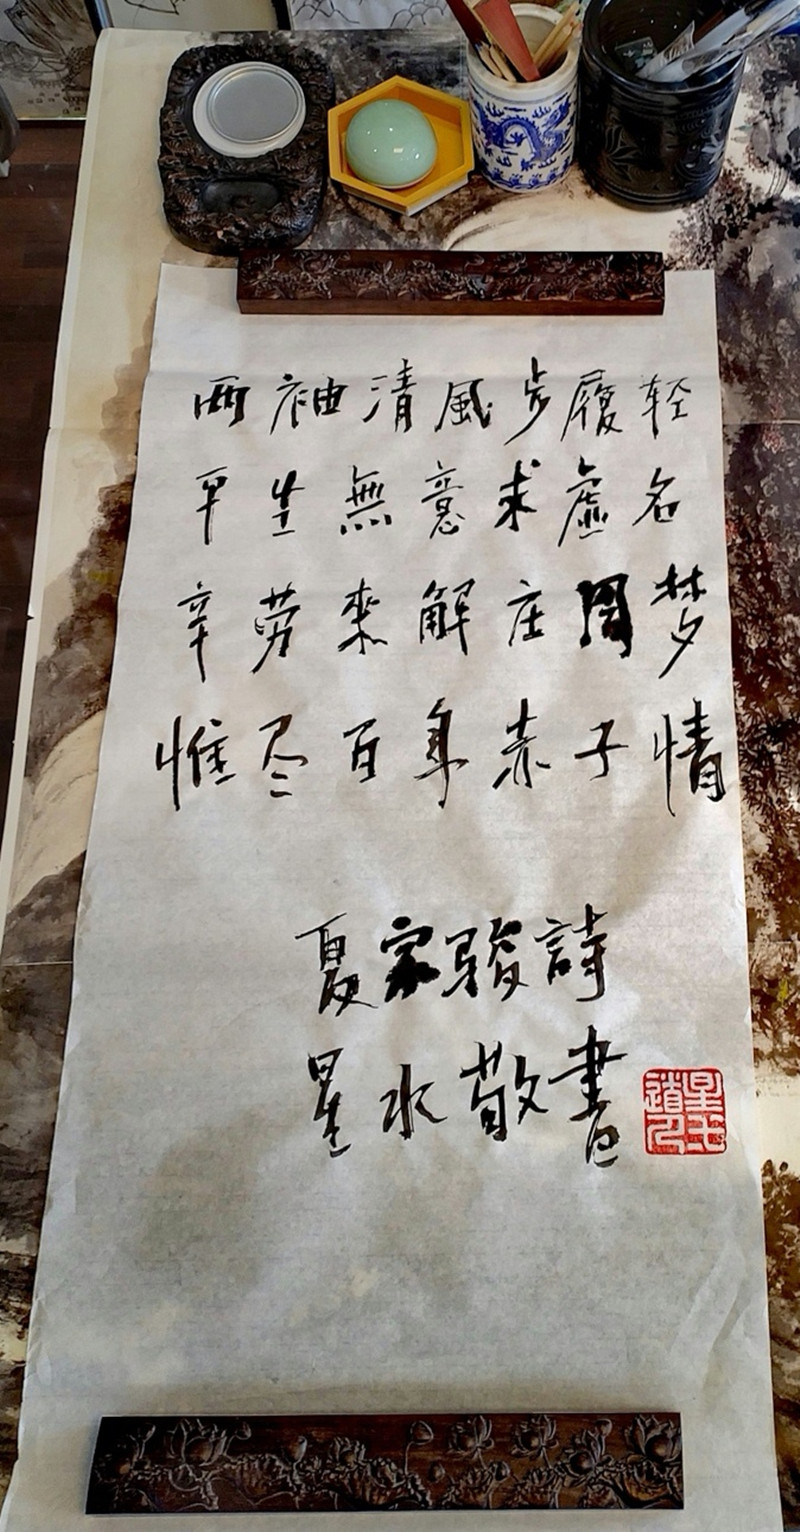 两袖清風步履轻
平生無意求虛名
辛劳来解庄周梦
惟尽百年赤子情
夏家骏詩
星水敬書